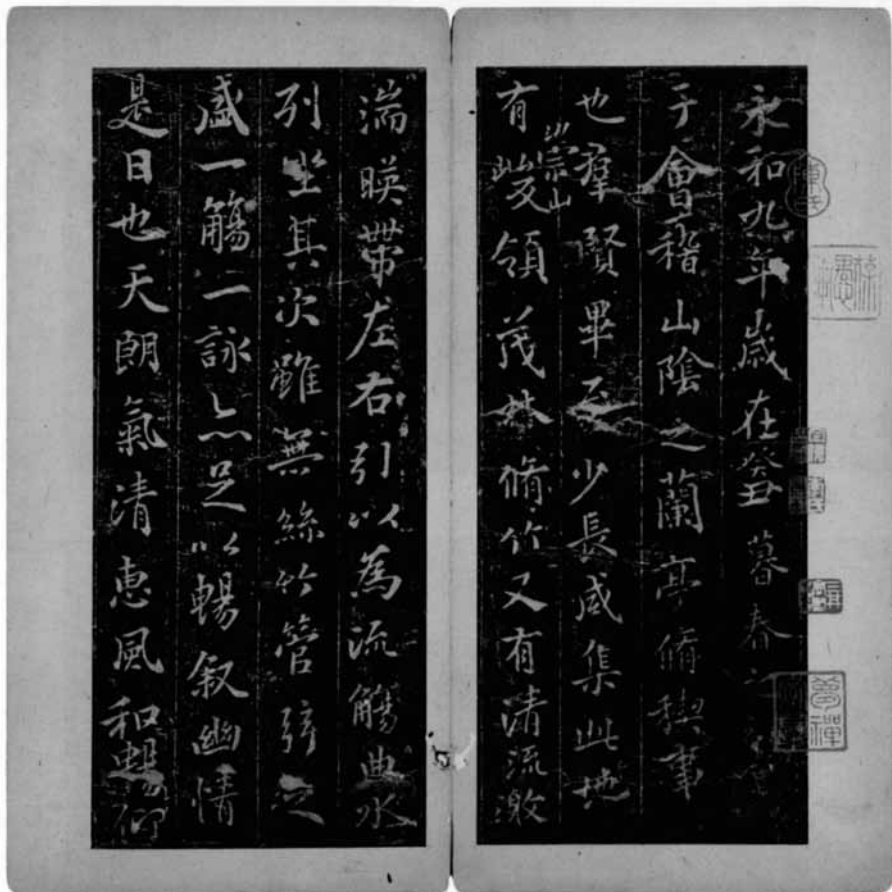 永和九年歲在癸丑暮春之初會
于會稽山陰之蘭亭脩稧事
也羣賢畢至少長咸集此地
有崇山峻領茂林脩竹又有清流激
湍暎帶左右引以為流觴曲水
列坐其次雖無絲竹管弦之
盛一觴一詠亦足以暢叙幽情
是日也天朗氣清惠風和暢仰
夢禪